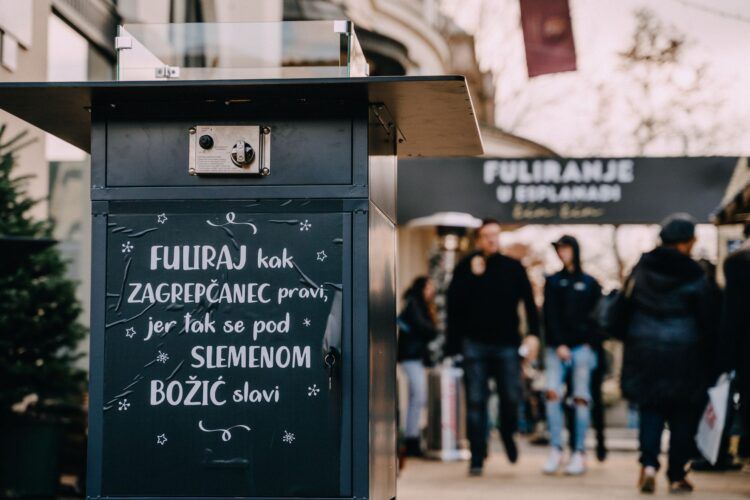 FULIRAJ kak
ZAGREPČANEC pravi,
jer tak se pod
SLEMENOM
BOŽIĆ slavi
FULIRANJE
U ESPLANADI